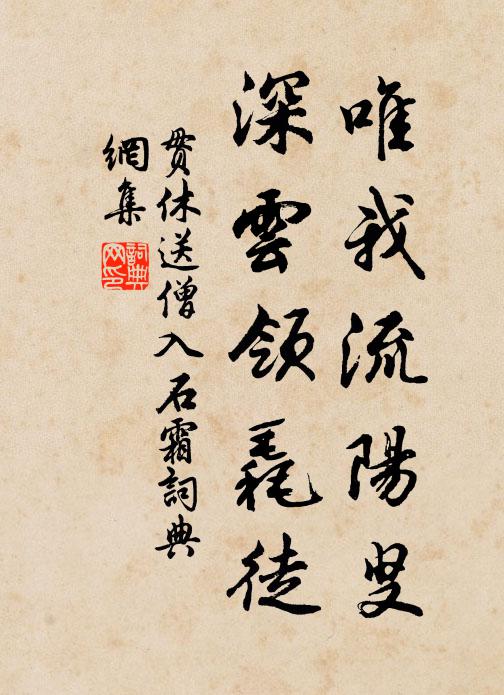 唯我流陽叟
深雲領毳徒
貫休送僧入石霜詞典
網集
詞典
网印